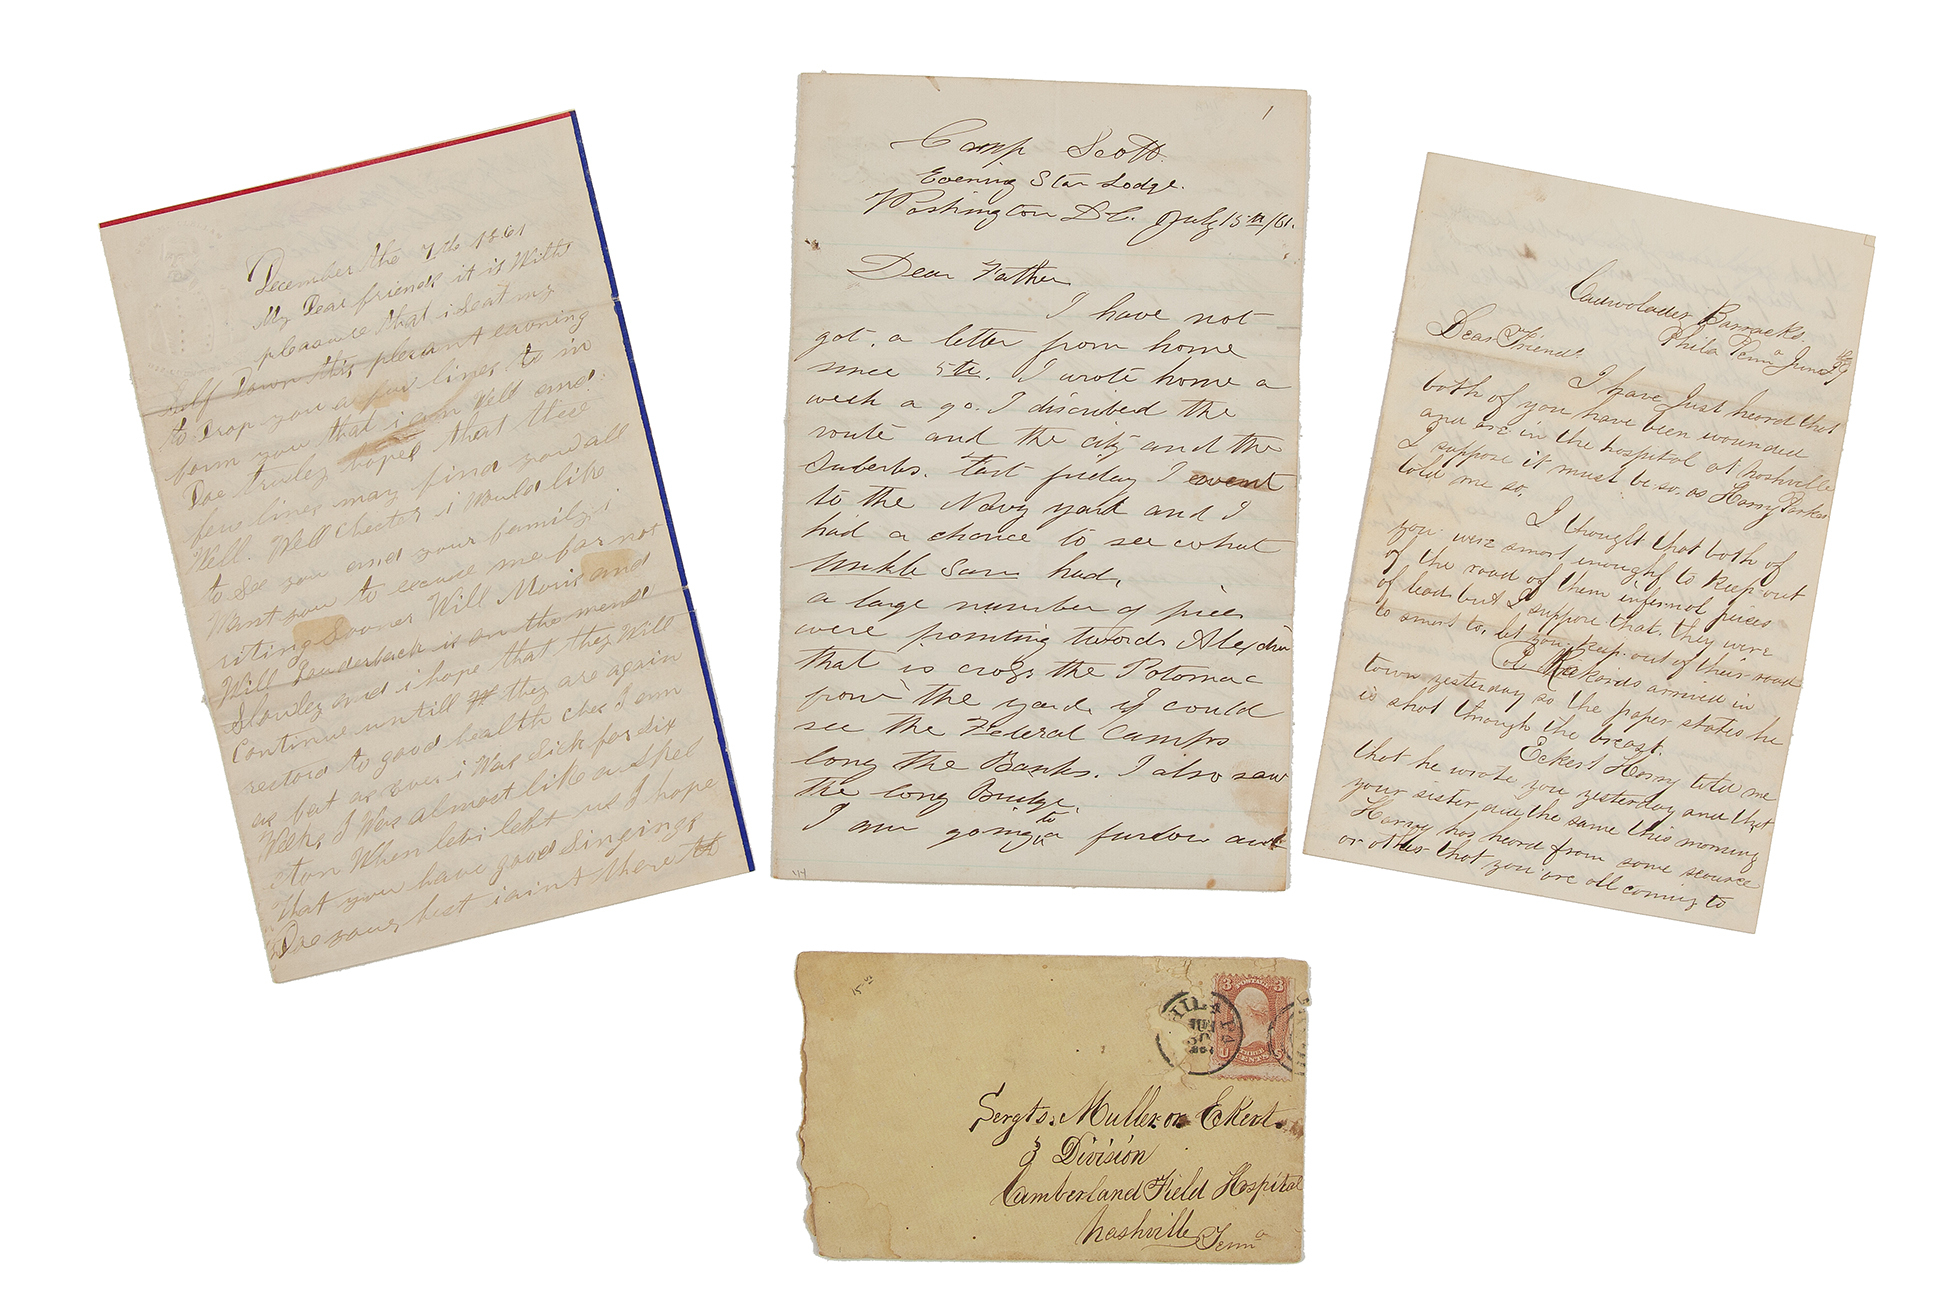 December the 7th 1861
My Dear friends it is With
pleasure that i Seat my
Self Down this pleasant evening
to Drop you a few lines to in
form you that i am Well and
Doe truley hopes that these
few lines may find you all
Well. Well Chester i Would like
to See you and your family i
Want you to excuse me for not
riting Sooner Will Moris and
Will Lauderback is on the mend
Slouley and i hope that they Will
Continue untill they are again
restord to good health ches I am
as fat as ever i Was Sick for six
Weeks I Was almost like a Skel
eton When levi left us I hope
that your have good Singings
Doe your best i aint there to
1
Camp Scott.
Evening Star Lodge.
Washington D.C. July 15th/61.
Dear Father
I have not
got. a letter from home
since 5th. I wrote home a
week a go. I discribed the
route and the city and the
Suberbs. Last friday I went
to the Navy yard and I
had a chance to see what
Unkle Sam had,
a large number of pices
were pointing twords Alexdria
that is cross the Potomac
from the yard. y could
see the Federal Camps
long the Banks. I also saw
the long Bridge.
I am going to a furlow and
Cadwolader Barracks.
Phila Penna June 29
Dear Friends
I have Just heard that
both of you have been wounded
and are in the hospital at Nashville
I suppose it must be so. as Harry Parker
told me so.
I thought that both of
you were smart enough to keep out
of the road of them infernal pieces
of lead. but I suppose that. they were
to smart to let you keep. out of their road
Col Rickards arrived in
town yesterday so the paper states he
is shot through the breast.
Eckert Harry told me
that he wrote you yesterday and that
your sister did the same this morning
Harry has heard from some scource
or other that you are all coming to
15
PHILA PA
JUN
30
3 POSTAGE 3
U THREE CENTS S
Sergts. Muller or Ekert.
3 Division
Cumberland Field Hospital
Nashville Tenna